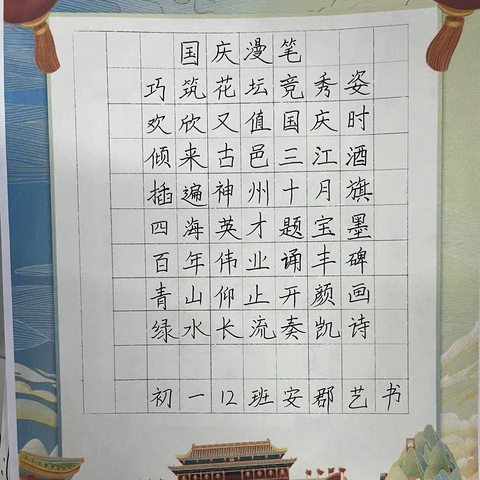 国庆漫笔
巧筑花坛竞秀姿
欢欣又值国庆时
倾来古邑三江酒
插遍神州十月旗
四海英才题宝墨
百年伟业诵丰碑
青山仰止开颜画
绿水长流奏凯诗
初一12班安郡艺书